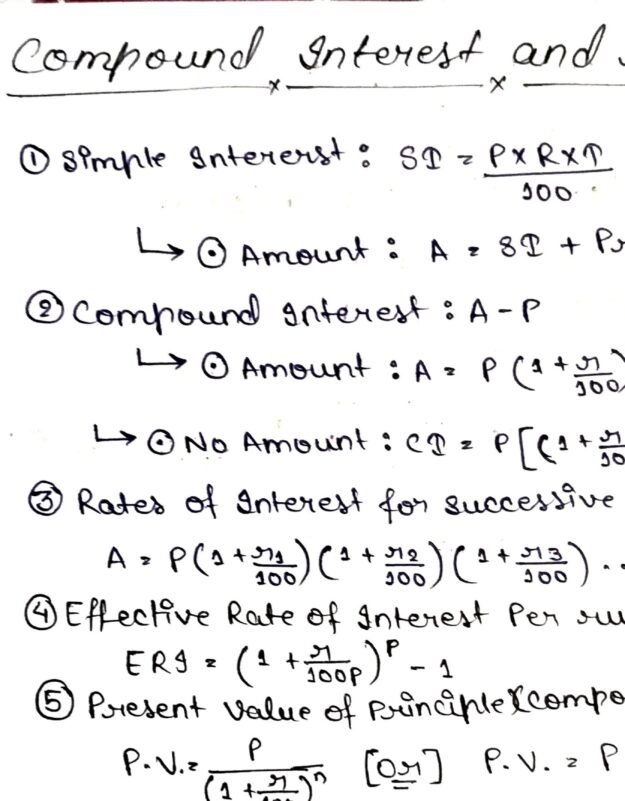 Compound Interest and
① Simple Intererst : SI = P×R×T/100
↳ ⊙ Amount : A = SI + Pr
② Compound Interest : A - P
↳ ⊙ Amount : A = P (1 + r/100)
↳ ⊙ No Amount : CI = P[(1 + r/10
③ Rates of Interest for successive
A = P(1 + r1/100)(1 + r2/100)(1 + r3/100)...
④ Effective Rate of Interest Per
ERI = (1 + r/100P)^P - 1
⑤ Present Value of Principle (compo
P.V. = P/(1 + r/100)^n [Or] P.V. = P